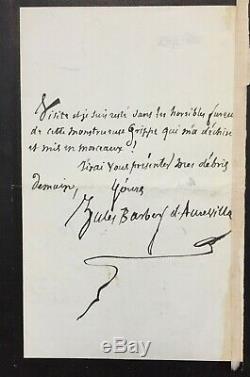 Visite et je suis resté dans les horribles fureurs
de cette monstrueuse Grippe qui m'a déchiré
et mis en morceaux !
J'irai vous présenter mes débris
demain,
Yours
Jules Barbey d'Aurevilly